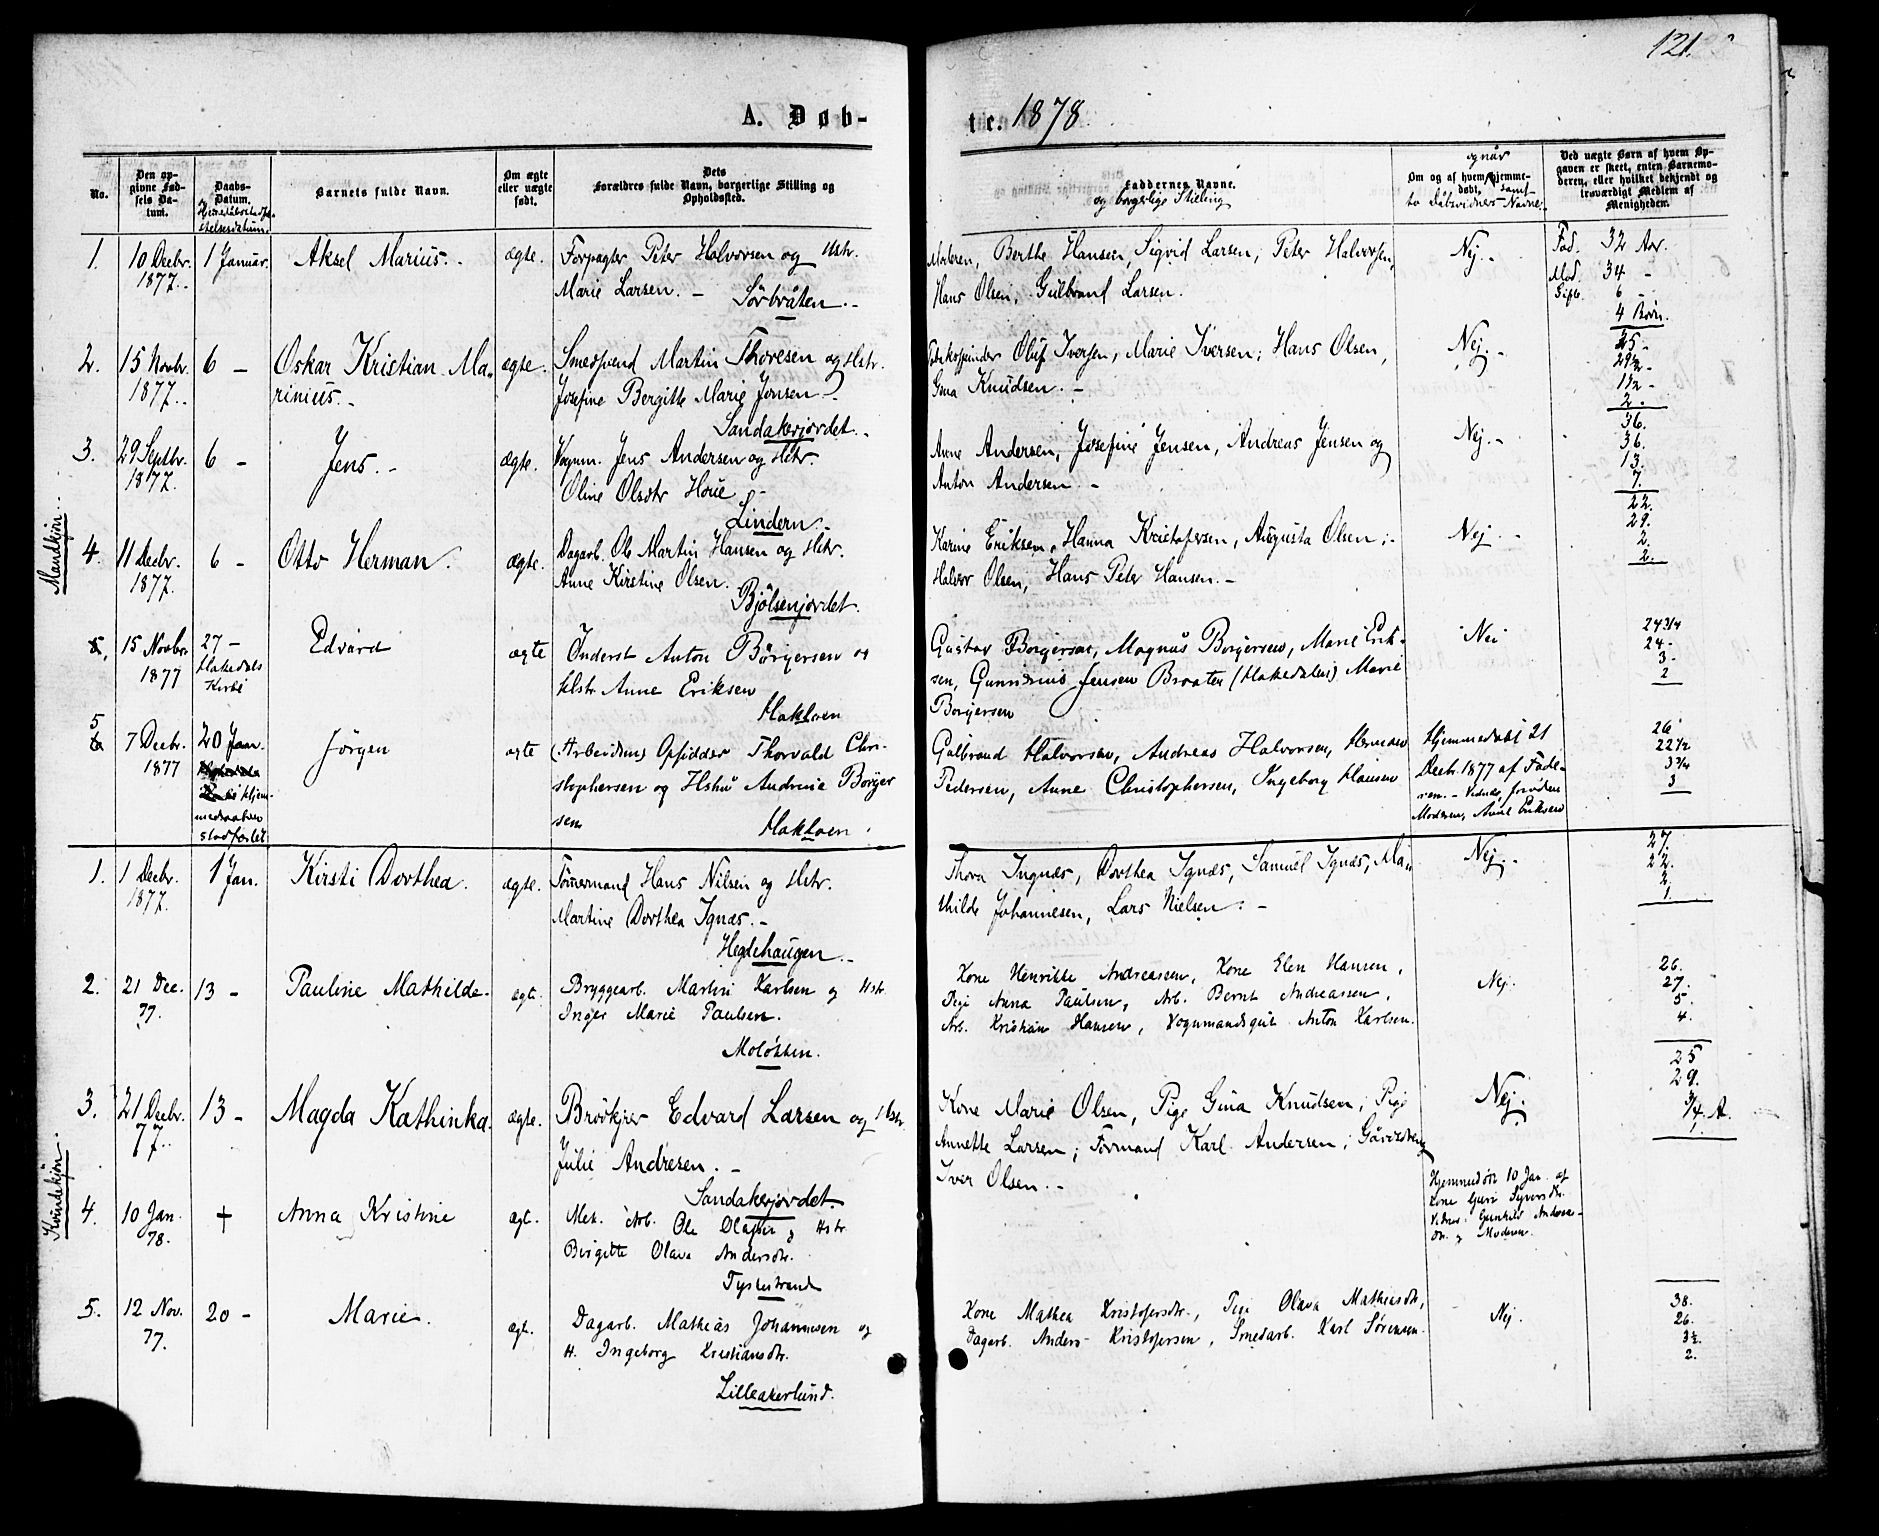 121.
A. Døb-
te. 1878.
No.
Den opgivne Fødsels Datum.
Daabs-Datum.
Barnets fulde Navn.
Om ægte eller uægte født.
Dets Forældres fulde Navn, borgerlige Stilling og Opholdssted.
Faddernes Navne.
og borgerlige Stilling
Om og af hvem hjemmedøbt, samt to Dåbvidners Navne.
og når
Ved uægte Børn af hvem Opgaven er skeet, enten Barnemoderen, eller hvilket bekjendt og troværdigt Medlem af Menigheden.
Mandkjøn.
1. 10 Decbr. 1 Januar. Aksel Marius. - ægte. Forpagter Peter Halvorsen og Hstr.
1877. Marie Larsen. - Sörbråten. -
Moderen, Berthe Hansen, Sigrid Larsen; Peter Halvorsen, Nej. - Fad. 32 Aar.
Hans Olsen, Gulbrand Larsen. Mod. 34 -
Gift. 6 -
4 Børn.
2. 15 Novbr. 6 - Oskar Kristian Ma- ægte. Smedsvend Martin Thoresen og Hstr.
1877. rinius. - Josefine Bergitte Marie Jensen -
Sandakerjordet. -
Oluf Iversen, Marie Iversen; Hans Olsen, Nej. - 25 -
Gina Knudsen. - 29½ -
1½ -
2 -
3. 29 Septbr. 6 - Jens. - ægte. Vognm. Jens Andersen og Hstr.
1877. Oline Olsdtr Houe -
Lindern. -
Anne Andersen, Josefine Jensen, Andreas Jensen og Nej. - 36.
Anton Andersen. - 36.
13.
7.
4. 11 Decbr. 6 - Otto Herman. ægte. Dagarb. Ole Martin Hansen og Hstr.
1877. Anne Kirstine Olsen.
Bjølsenjordet.
Karine Eriksen, Hanna Kristofersen, Augusta Olsen; - Nej. - 22.
Halvor Olsen, Hans Peter Hansen. - 29.
2.
2.
5. 15 Novbr 27 - Edvard ægte Inderst Anton Börgersen og
1877 Hakedals Kirke Hstr Anne Eriksen
Hakloen
Gustav Borgersen, Magnus Borgersen, Marie Erik- Nei 24 3/4
sen, Gunnerius Jensen Braaten (Hakedalen) Marie 24 -
Borgersen 3 -
2
5 7 Decbr. 20 Jan. Jørgen ægte (Arbeidsm) Opsidder Thorvald Chri-
1877 Hjem- stophersen og Hstru Andrine Borger
medaaben sen
stadfæstet Hakloen
Gulbrand Halvorsen, Andreas Halvorsen, Herman Hjemmedøbt 21 26
Pedersen, Anne Christophersen, Ingeborg Hansen Decbr. 1877 af Fade- 22½
ren. - Vidner, foruden 3 3/4
Moderen, Anne Eriksen 3
Kvindekjøn.
1. 1 Decbr. 1 Jan. Kirsti Dorthea. ægte. Tømmermand Hans Nilsen og Hstr.
1877. Martine Dorthea Ignæs. -
Hegdehaugen. -
Thora Ingnæs, Dorthea Ignæs, Samuel Ignæs, Ma- Nej. - 27.
thilde Johannesen, Lars Nielsen. - 22.
2.
1.
2. 21 Dec. 13 - Pauline Mathilde. ægt. Bryggearb. Martin Karlsen og Hstr.
77. Inger Marie Paulsen.
Moløkken.
Kone Henrikke Andreassen, Kone Elen Hansen, Nej. 26.
Pige Anna Paulsen, Arb. Bernt Andreassen, 27.
Arb. Kristian Hansen, Vognmandsgut Anton Karlsen. 5.
4.
3. 21 Decbr. 13 - Magda Kathinka. ægte. Brødkjører Edvard Larsen og Hstr.
77. Julie Andresen. -
Sandakerjordet.
Kone Marie Olsen, Pige Gina Knudsen; Pige Nej. 25
Annette Larsen; Formand Karl Andersen; Gårdsdreng 29.
Iver Olsen. - 3/4 A.
1.
4. 10 Jan. † Anna Kristine ægt. Mek. Arb. Ole Olafsen og Hstr
78. Birgitte Olava Andersdtr.
Tyskestrand
Hjemmedøbt 10 Jan. af
Kone Guri Syversdtr.
Vidner: Gunhild Anders-
dtr. og Moderen.
5. 12 Nov. 20 - Marie. ægt. Dagarb. Mathias Johannesen og
77. H. Ingeborg Kristiansdtr.
Lilleakerlund.
Kone Mathea Kristofersdtr., Pige Olava Mathiasdtr, Nej. 38.
Dagarb. Anders Kristofersen, Smedarb. Karl Sørensen. 26.
3½.
2.